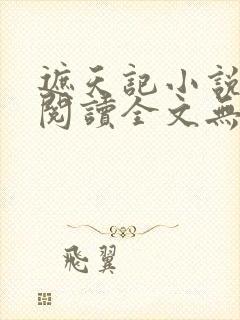 遮天記小說
閱讀全文無
飛翼